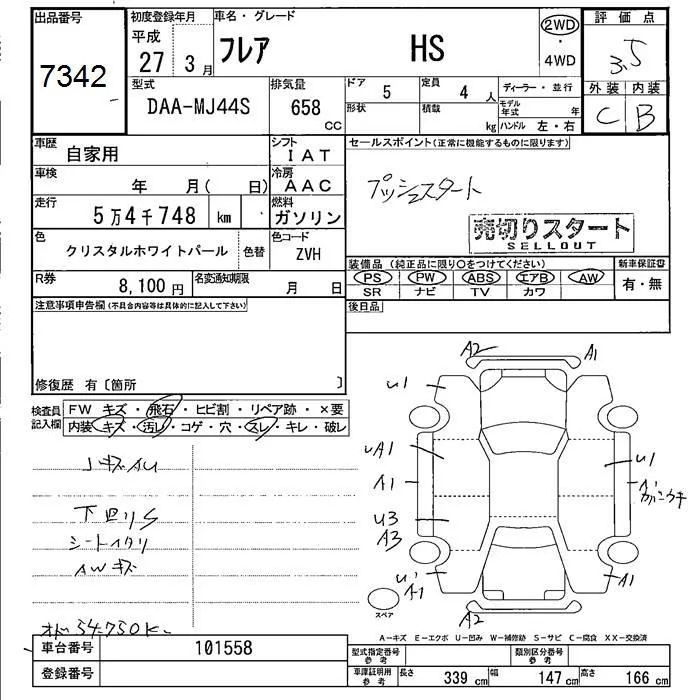 出品番号 初度登録年月 車名・グレード 2WD 評価点
7342 平成 27年 3月 フレア HS ・ 4WD 3.5
型式 排気量 ドア 5 定員 4人 ディーラー・並行 外装 内装
DAA-MJ44S 658 CC 形状 積載 kg モデル年式 年 C B
ハンドル 左・右
車歴 自家用 シフト IAT セールスポイント(正常に機能するものに限ります)
車検 年 月( 日) 冷房 AAC プッシュスタート
走行 5万4千748 km 燃料 ガソリン 売切りスタート
SELLOUT
色 クリスタルホワイトパール 色替 色コード ZVH
装備品(純正品に限り○をつけてください) 新車保証書
PS PW ABS エアB AW 有・無
SR ナビ TV カワ
R券 8,100円 名変通知期限 月 日
注意事項申告欄(不具合内容等は具体的に記入して下さい) 後日品
修復歴 有〔箇所 〕
検査員記入欄 FW キズ・飛石・ヒビ割・リペア跡・×要
内装 キズ・汚レ・コゲ・穴・スレ・キレ・破レ
A2 A1
U1
UA1 U1
A1 A1
U3
A3
U1 A1 A1
A2
スペア
キズAU
下回りS
シートイタリ
AWキズ
オド54750K
A-キズ E-エクボ U-凹み W-補修跡 S-サビ C-腐食 XX-交換済
車台番号 101558 型式指定番号 参考 類別区分番号 参考
登録番号 車庫証明用 参考 長さ 339 cm 幅 147 cm 高さ 166 cm